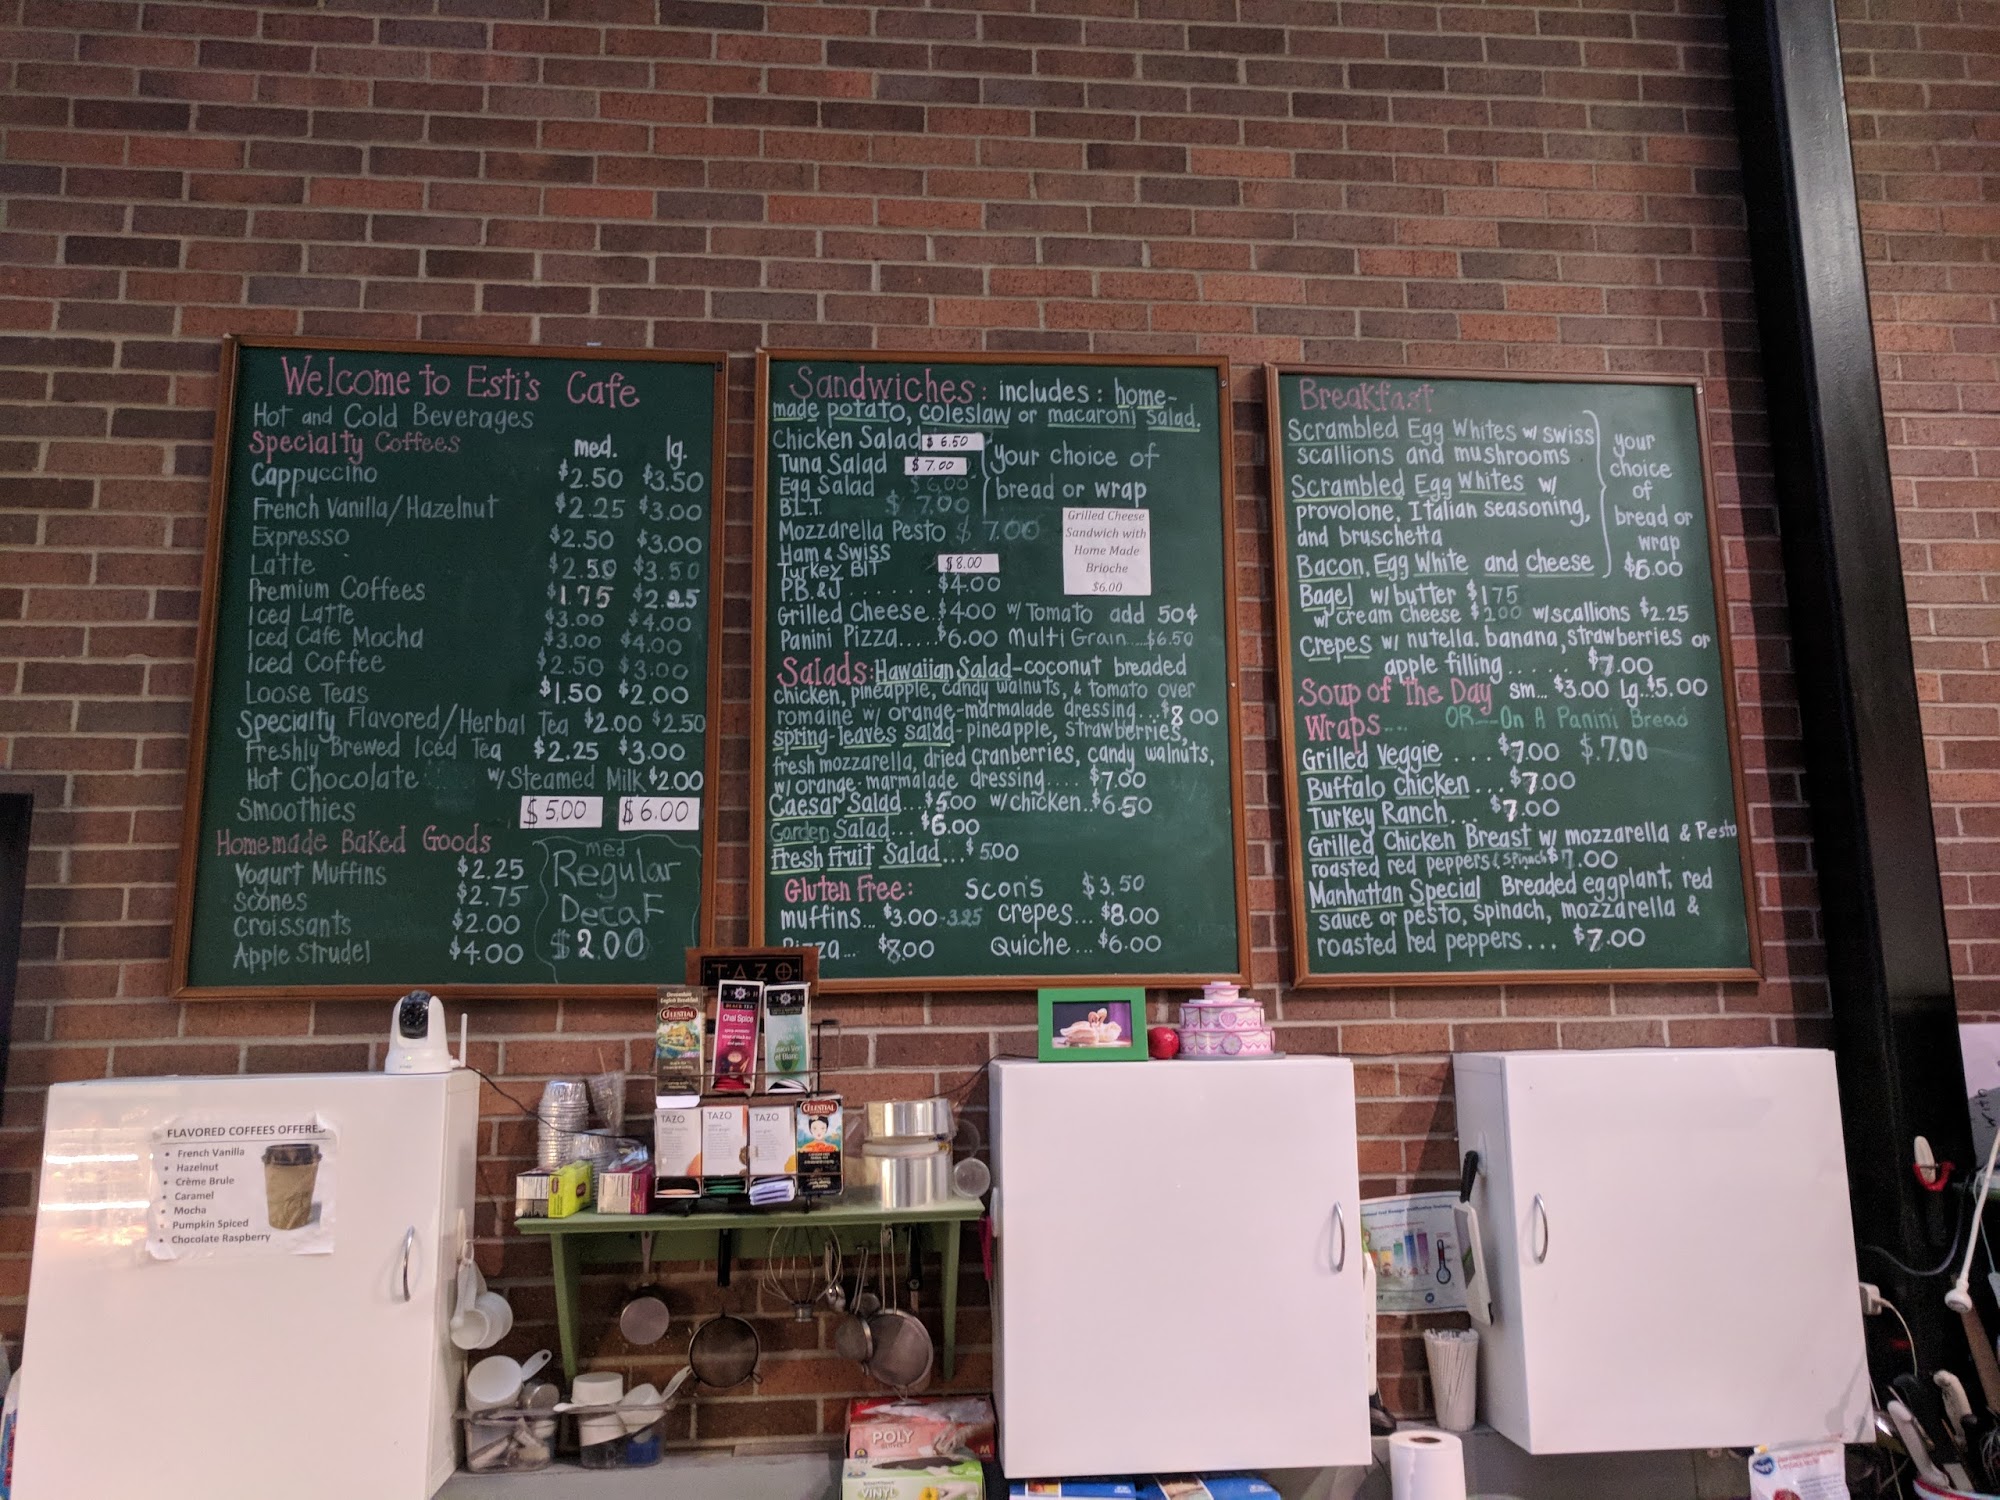 Welcome to Esti's Cafe
Hot and Cold Beverages
Specialty Coffees med. lg.
Cappuccino $2.50 $3.50
French Vanilla/Hazelnut $2.25 $3.00
Expresso $2.50 $3.00
Latte $2.50 $3.50
Premium Coffees $1.75 $2.25
Iced Latte $3.00 $4.00
Iced Cafe Mocha $3.00 $4.00
Iced Coffee $2.50 $3.00
Loose Teas $1.50 $2.00
Specialty Flavored/Herbal Tea $2.00 $2.50
Freshly Brewed Iced Tea $2.25 $3.00
Hot Chocolate w/ Steamed Milk $2.00
Smoothies $5.00 $6.00
Homemade Baked Goods
Yogurt Muffins $2.25
Scones $2.75
Croissants $2.00
Apple Strudel $4.00
med
Regular
Decaf
$2.00
Sandwiches: includes: home-
made potato, coleslaw or macaroni salad.
Chicken Salad $6.50
Tuna Salad $7.00
Egg Salad $6.00
B.L.T. $7.00
your choice of
bread or wrap
Mozzarella Pesto $7.00
Ham & Swiss
Turkey BIT $8.00
P.B. & J ....... $4.00
Grilled Cheese
Sandwich with
Home Made
Brioche
$6.00
Grilled Cheese. $4.00 w/ Tomato add 50¢
Panini Pizza..... $6.00 Multi Grain...$6.50
Salads: Hawaiian Salad-coconut breaded
chicken, pineapple, candy walnuts, & tomato over
romaine w/ orange-marmalade dressing...$8.00
spring-leaves salad-pineapple, strawberries,
fresh mozzarella, dried cranberries, candy walnuts,
w/ orange-marmalade dressing.... $7.00
Caesar Salad...$5.00 w/chicken..$6.50
Garden Salad... $6.00
Fresh Fruit Salad...$5.00
Gluten Free: Scon's $3.50
muffins... $3.00-3.25 crepes... $8.00
Pizza... $8.00 Quiche... $6.00
Breakfast
Scrambled Egg Whites w/ swiss
scallions and mushrooms
Scrambled Egg Whites w/
provolone, Italian seasoning,
and bruschetta
Bacon, Egg White and cheese
your
choice
of
bread or
wrap
$6.00
Bagel w/ butter $1.75
w/ cream cheese $2.00 w/scallions $2.25
Crepes w/ nutella, banana, strawberries or
apple filling...... $7.00
Soup of The Day sm... $3.00 lg..$5.00
Wraps... OR--On A Panini Bread
Grilled Veggie ... $7.00 $.7.00
Buffalo chicken ... $7.00
Turkey Ranch... $7.00
Grilled Chicken Breast w/ mozzarella & Pesto
roasted red peppers & spinach $7.00
Manhattan Special Breaded eggplant, red
sauce or pesto, spinach, mozzarella &
roasted red peppers... $7.00
TAZO
CELESTIAL
Chai Spice
TAZO TAZO TAZO CELESTIAL
FLAVORED COFFEES OFFERED
• French Vanilla
• Hazelnut
• Crème Brule
• Caramel
• Mocha
• Pumpkin Spiced
• Chocolate Raspberry
POLY
M
VINYL